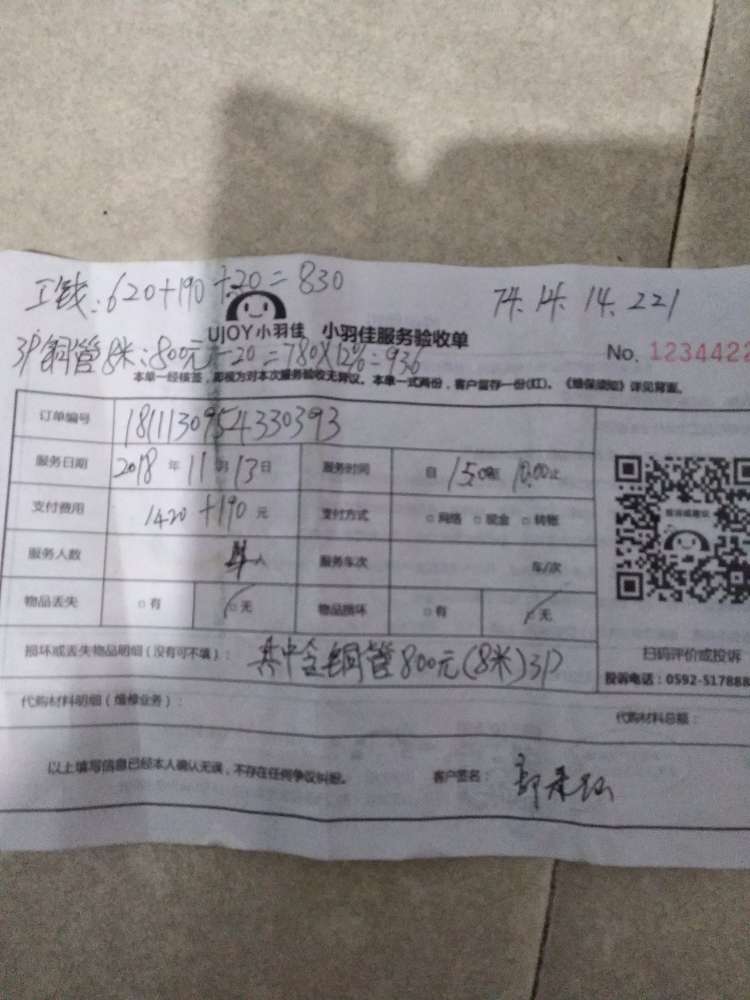 工钱:620+190+20=830
74.14.14.221
3P铜管8米:800元-20=780X12%=936
UJOY小羽佳 小羽佳服务验收单
No. 1234422
本单一经核签,即视为对本次服务验收无异议。本单一式两份,客户留存一份(红)。《维保须知》详见背面。
订单编号 1811130954330393
服务日期 2018年11月13日 服务时间 自15:00至18:00止
支付费用 1420+190元 支付方式 □网络 □现金 □转帐
服务人数 人 服务车次 车/次
物品丢失 □有 □无 物品损坏 □有 □无
损坏或丢失物品明细(没有可不填): 其中含铜管800元(8米)3P
扫码评价或投诉
投诉电话:0592-517888
代购材料明细(维修业务): 代购材料总额:
以上填写信息已经本人确认无误,不存在任何争议纠纷。 客户签名: